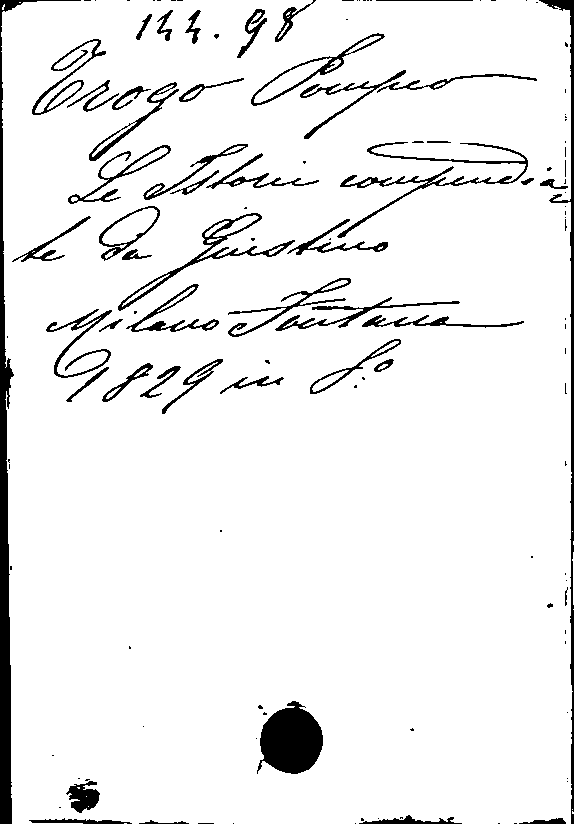 144. 98
Trogo Pompeo
Le Istorie compendia=
te da Giustino
Milano Fontana
1829 in 8.o